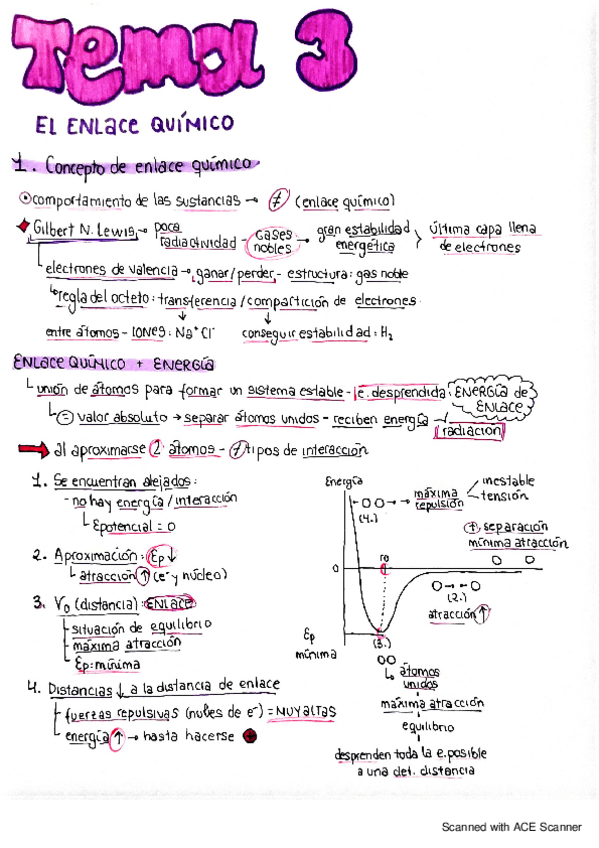 Tema 3
EL ENLACE QUÍMICO
1. Concepto de enlace químico
comportamiento de las sustancias → ≠ (enlace químico)
Gilbert N. Lewis → poca radiactividad → Gases nobles → gran estabilidad energética } última capa llena de electrones
electrones de valencia → ganar/perder - estructura: gas noble
regla del octeto: transferencia / compartición de electrones.
entre átomos - IONES: Na⁺ Cl⁻ conseguir estabilidad: H₂
ENLACE QUÍMICO + ENERGÍA
unión de átomos para formar un sistema estable - e. desprendida: ENERGÍA de ENLACE
(=) valor absoluto → separar átomos unidos - reciben energía
radiación
al aproximarse 2 átomos - ≠ tipos de interacción
1. Se encuentran alejados:
- no hay energía / interacción
Epotencial = 0
2. Aproximación: Ep ↓
atracción ↑ (e⁻ y núcleo)
3. r₀ (distancia): ENLACE
situación de equilibrio
máxima atracción
Ep: mínima
4. Distancias ↓ a la distancia de enlace
fuerzas repulsivas (nubes de e⁻) = MUY ALTAS
energía ↑ → hasta hacerse +
Energía
(4.)
máxima repulsión
inestable
tensión
(+) separación
mínima atracción
r₀
0
(2.)
atracción ↑
Ep mínima
(3.)
átomos unidos
máxima atracción
equilibrio
desprenden toda la e. posible
a una det. distancia
Scanned with ACE Scanner